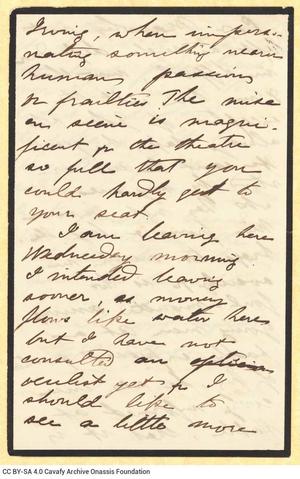 Irving, when imperso-
nating something nearer
human passions
or frailties The mise
en scène is magni-
ficent & the theatre
so full that you
could hardly get to
your seat.
I am leaving here
Wednesday morning
I intended leaving
sooner, as money
flows like water here
but I have not
consulted an optician
oculist yet, & I
should like to
see a little more
CC BY-SA 4.0 Cavafy Archive Onassis Foundation